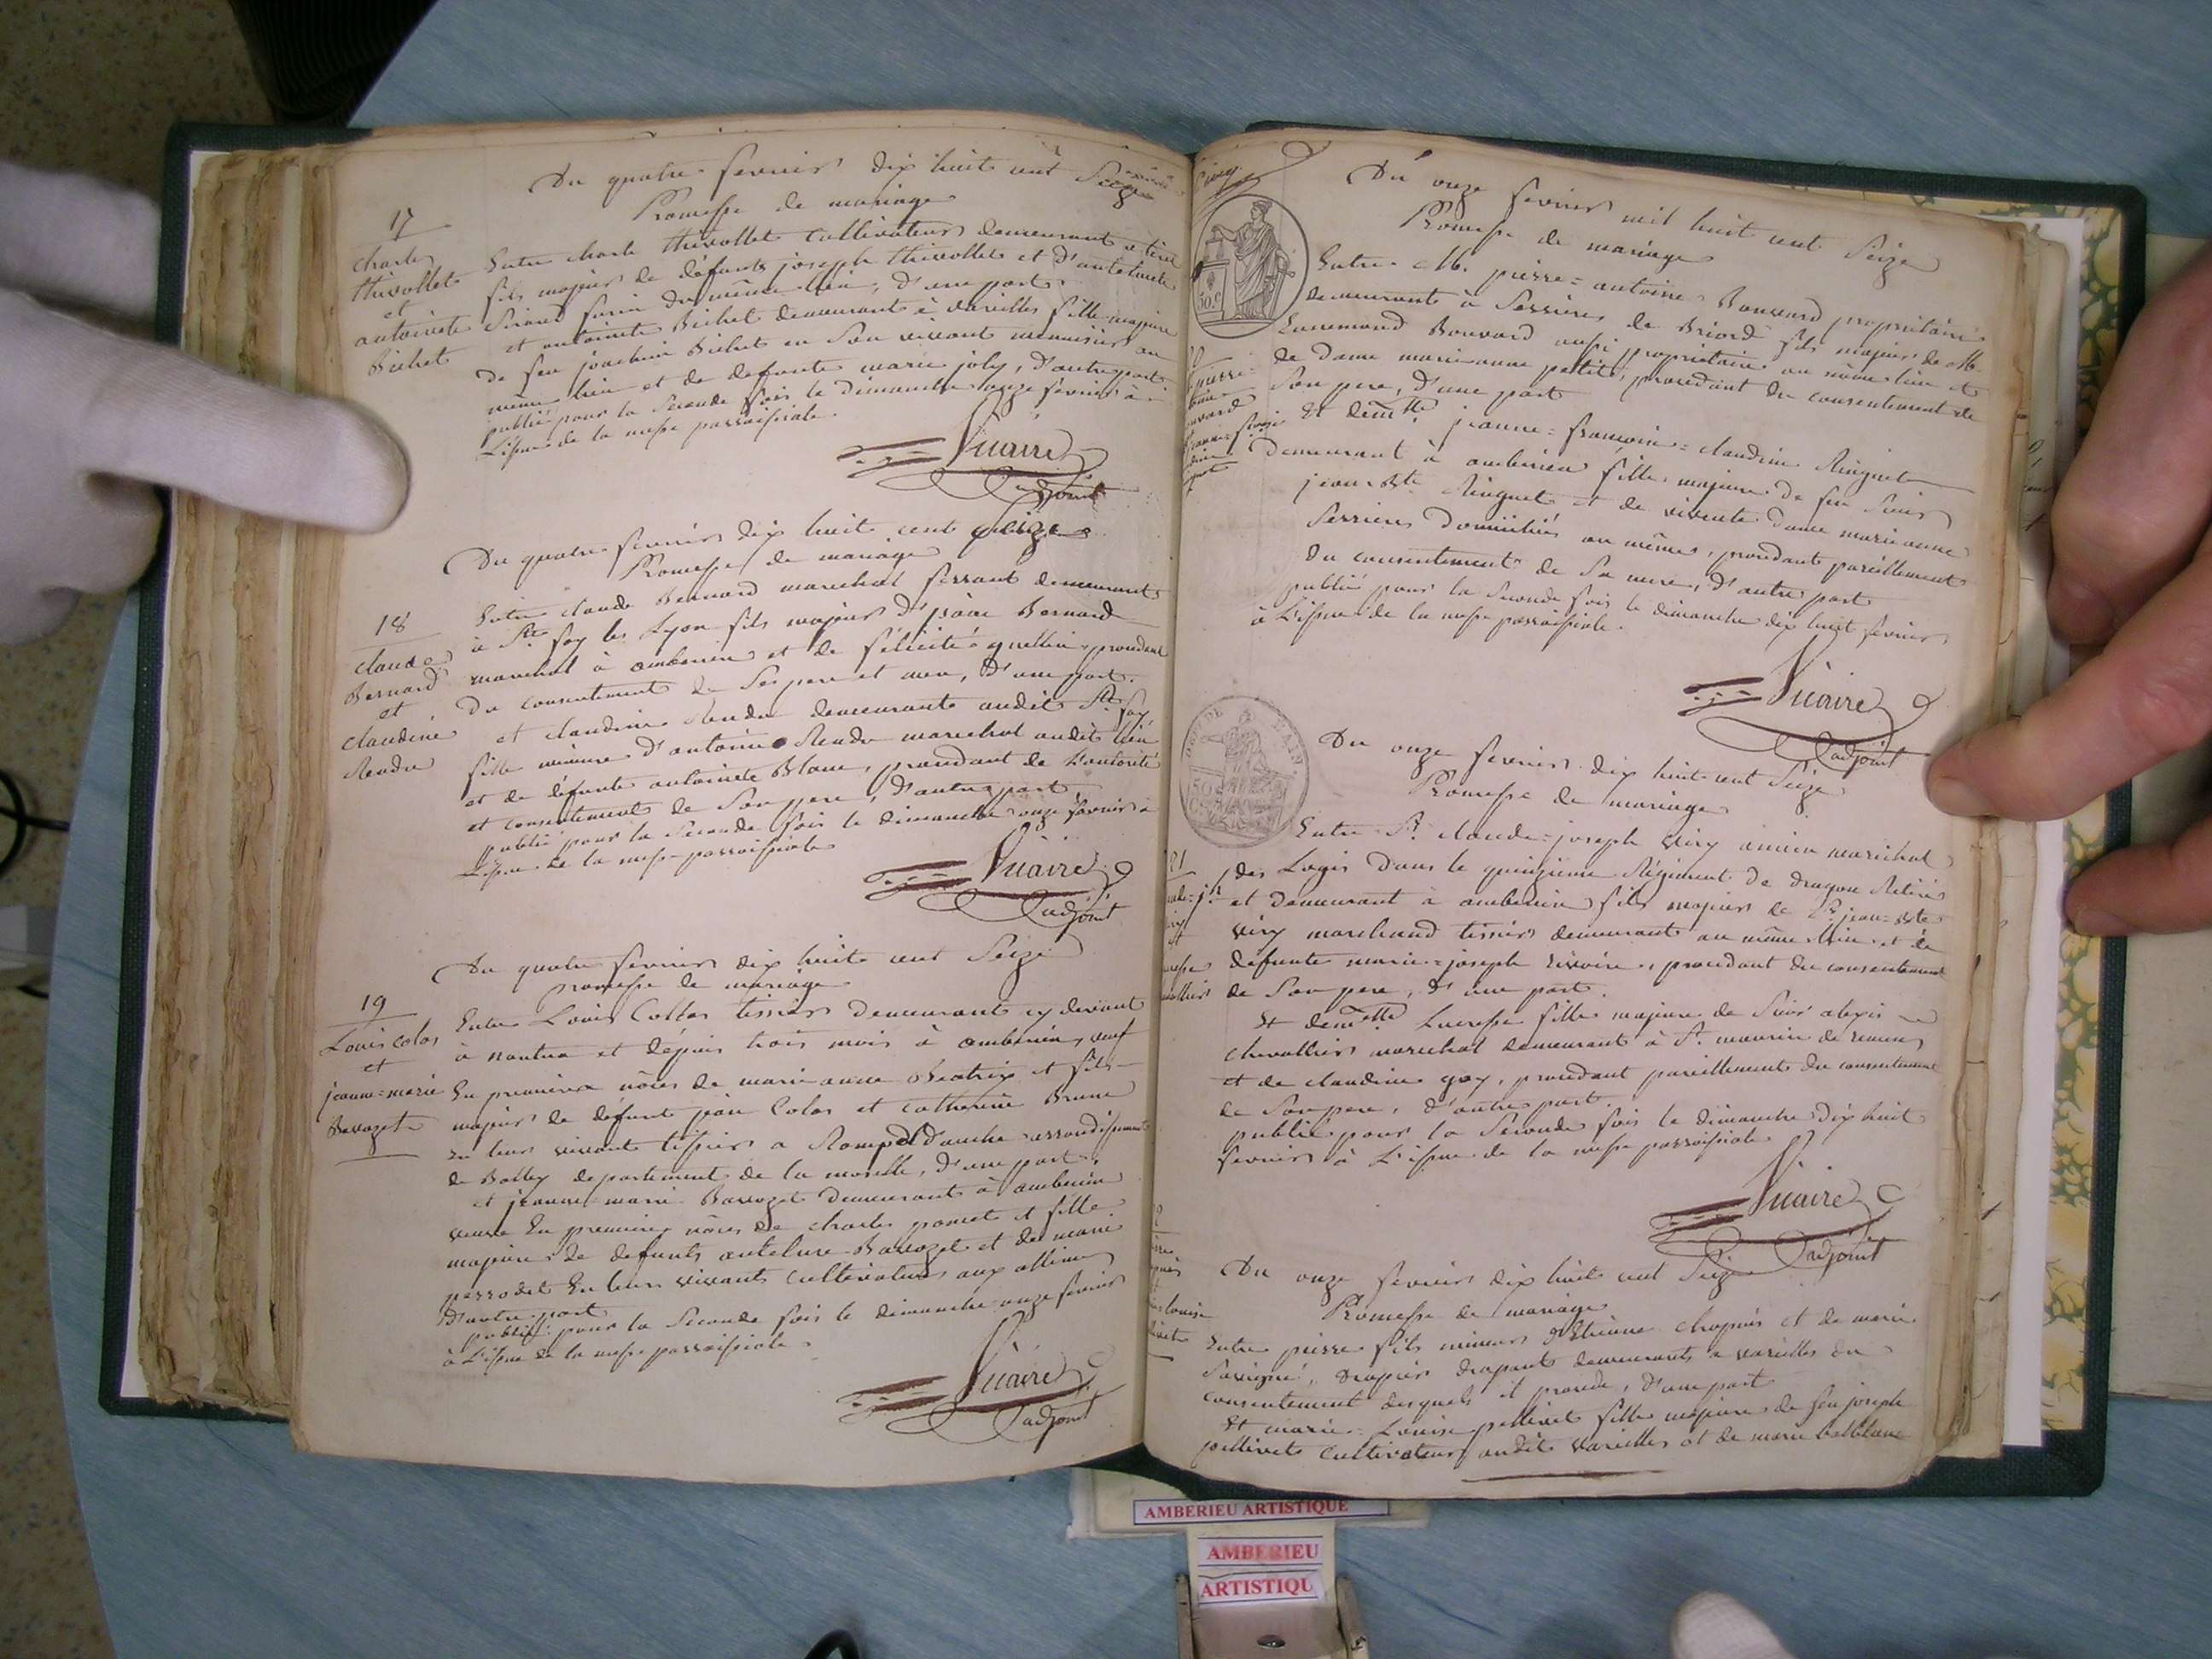 Du quatre fevrier dix huit cent Seize
Promesse de mariage
17
charles
thivollet
et
antoinete
Bichet
Entre charle thivollet cultivateur demeurant a
fils majeur de défunts joseph thivollet et d'antoinete
du même lieu, d'une part
et antoinete Bichet demeurant à Vareilles fille majeure
de feu joachim Bichet en son vivant menuisier au
même lieu et de defunte marie joly, d'autre part
publié pour la seconde fois le dimanche onze fevrier à
L'issue de la messe parroissiale
Vicaire
adjoint
Du quatre fevrier dix huit cent seize
Promesse de mariage
18
claude
Bernard
et
claudine
Rendu
Entre claude Bernard marechal ferrant demeurant
à Ste foy les Lyon fils majeur d' Bernard
marechal à amberieu et de félicité procedant
du consentement de ses pere et mere, d'une part.
et claudine Rendu demeurante audit Ste foy
fille mineure d'antoine Rendu marechal audit lieu
et de défunte antoinete Blanc, procedant de l'autorité
et consentement de son pere, d'autre part
publié pour la seconde fois le dimanche onze fevrier à
L'issue de la messe parroissiale
Vicaire
adjoint
Du quatre fevrier dix huit cent Seize
Promesse de mariage
19
Louis colas
et
jeanne=marie
Bavozet
Entre Louis Collas tissier demeurant cy devant
à nantua et dépuis trois mois à amberieu, veuf
En premiere nôces de marie anne Beatrix et fils
majeur de défunts jean Colas et catherine Brune
en leur vivant tissier a arrondissement
de departement de la moselle, d'une part,
et jeanne-marie Bavozet demeurant à amberieu
veuve En premiere nôces de charles pomet et fille
majeure de defunts antelme Bavozet et de marie
perrodet En leur vivants cultivateurs aux allimes
d'autre part
publié pour la seconde fois le dimanche onze fevrier
à L'issue de la messe parroissiale.
Vicaire
adjoint
Du onze fevrier mil huit cent Seize
Promesse de mariage
50.C
Entre Mr. pierre=antoine Bouvard propriétaire
demeurant à Serrières de Briord fils majeur de Mr.
Ennemond Bouvard aussi propriétaire au même lieu et
de dame marie-anne petit, procedant du consentement de
Son pere, d'une part
Et demelle jeanne=françoise=claudine Ringuet
demeurant à amberieu fille majeure de feu Sieur
jean-Bte Ringuet et de vivante dame marie anne
Serriere domiciliés au même, procedant pareillement
du consentement de Sa mere, d'autre part
publié pour la seconde fois le dimanche dix huit fevrier
à L'issue de la messe parroissiale.
Vicaire
adjoint
Du onze fevrier dix huit cent Seize
Promesse de mariage
21
Entre Sr. claude=joseph Viry ancien marechal
des Logis dans le quinzième Régiment de dragon Retiré
et demeurant à amberieu fils majeur de Sr. jean=Bte
Viry marchand tissier demeurant au même lieu et de
défunte marie=joseph procedant du consentement
de Son pere, d'une part.
Et demelle Lucresse fille majeure de Sieur alexis
chevallier marechal demeurant à St. maurice de remens
et de claudine goy, procedant pareillement du consentement
de Son pere, d'autre part.
publié pour la Seconde fois le dimanche dix huit
fevrier à L'issue de la messe parroissiale
Vicaire
adjoint
Du onze fevrier dix huit cent Seize
Promesse de mariage
Entre pierre fils mineur d'Etienne chapuis et de marie
Savigné, drapier demeurants a vareilles du
consentement desquels il procede, d'une part
Et marie=Louise pellivet fille majeure de feu joseph
pellivet cultivateur audit vareilles et de marie
AMBERIEU ARTISTIQUE
AMBERIEU
ARTISTIQU